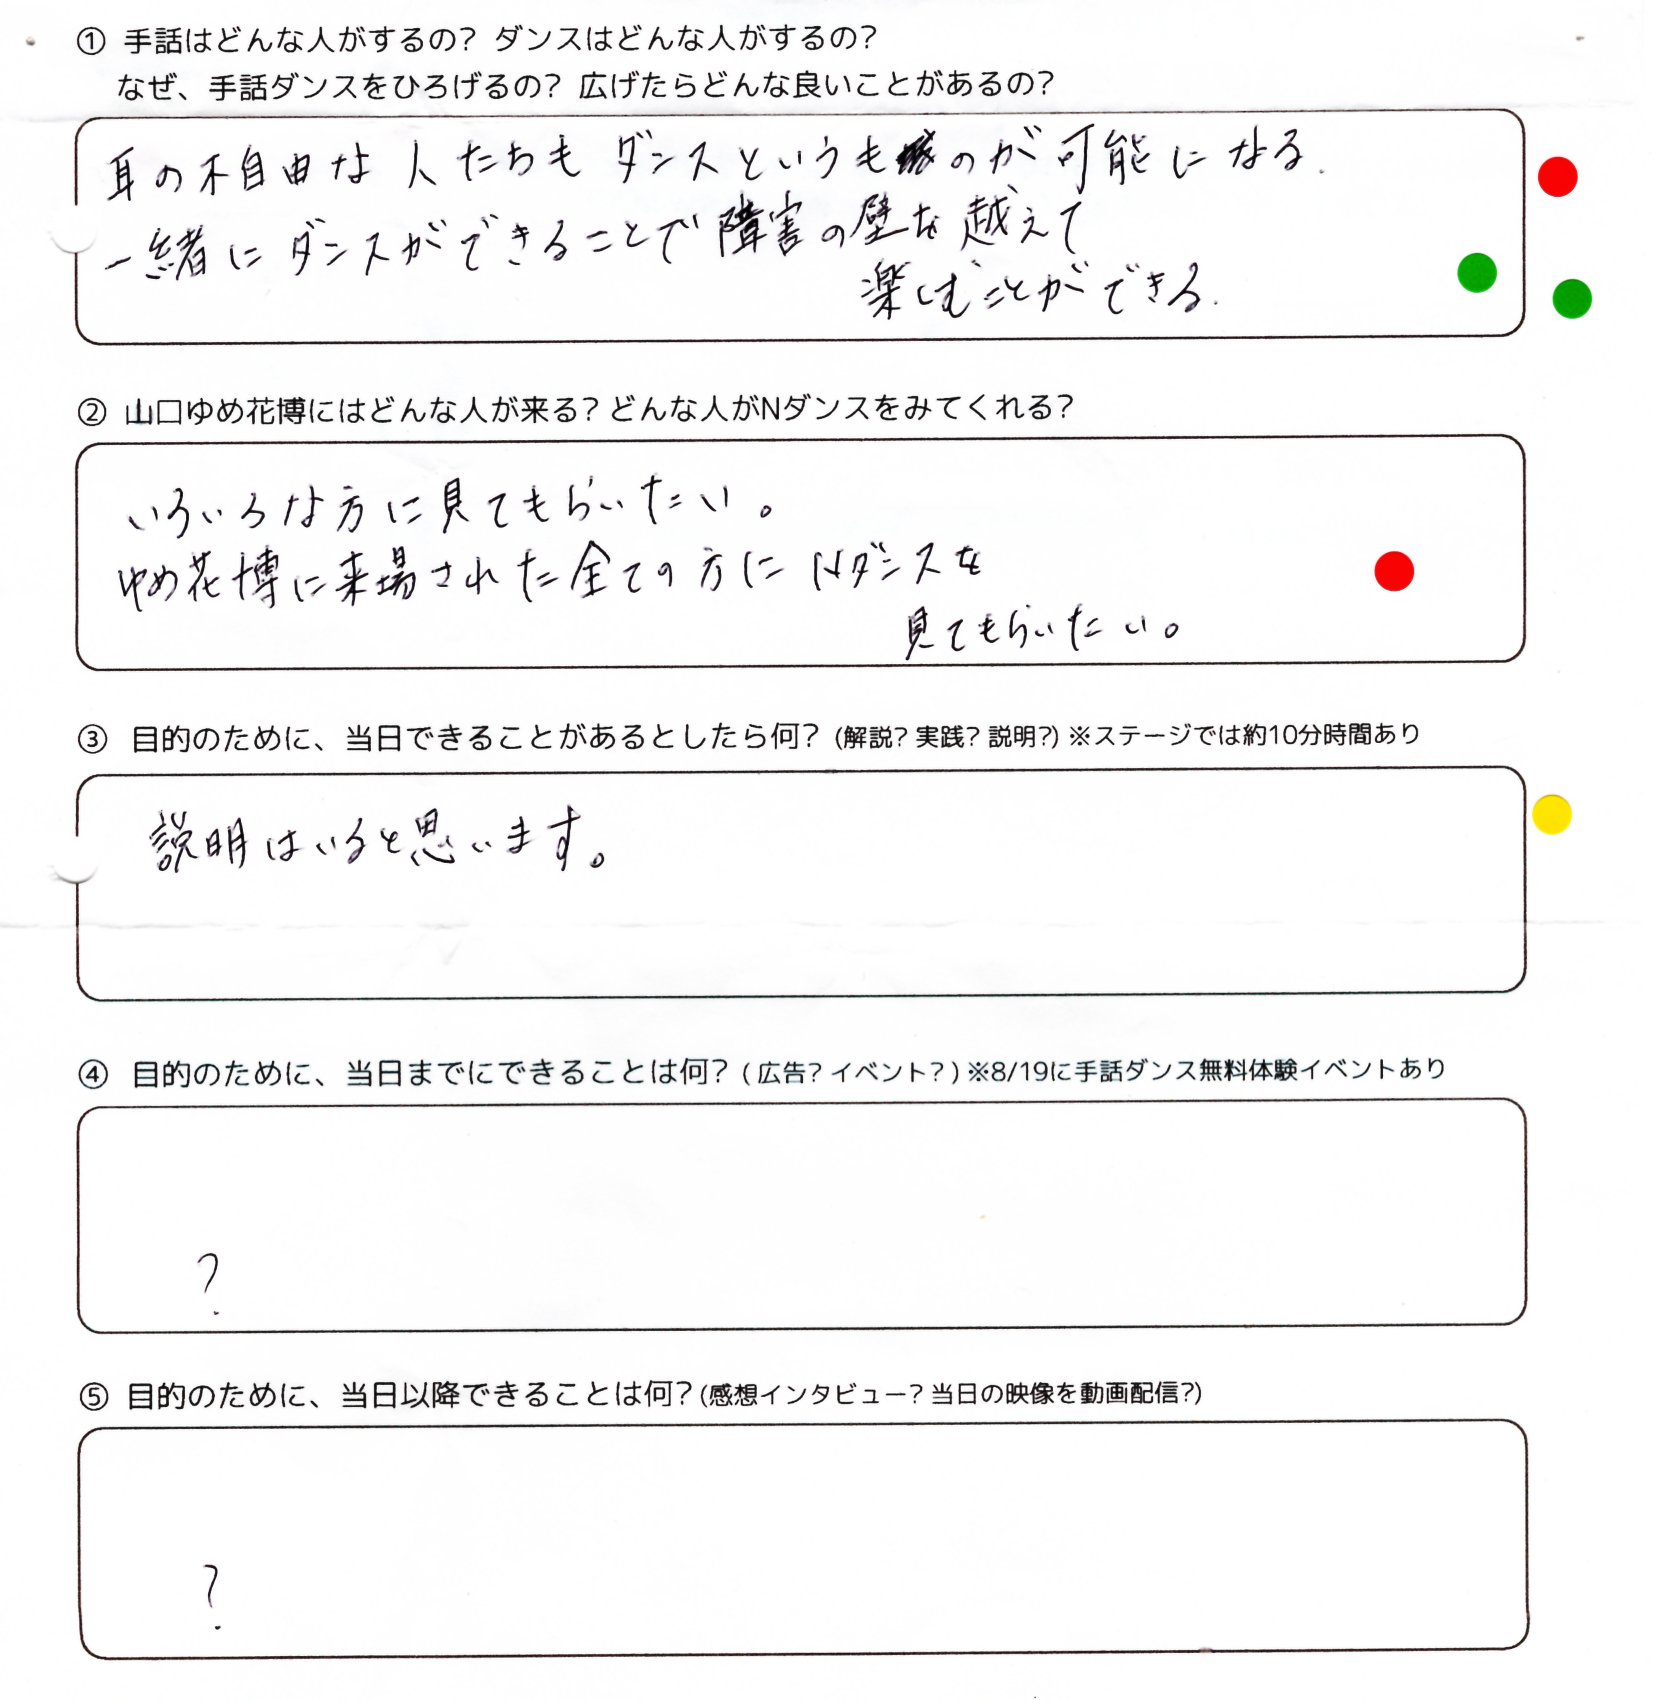 ① 手話はどんな人がするの? ダンスはどんな人がするの?
なぜ、手話ダンスをひろげるの? 広げたらどんな良いことがあるの?
耳の不自由な人たちもダンスというものが可能になる.
一緒にダンスができることで障害の壁を越えて
楽しむことができる.
② 山口ゆめ花博にはどんな人が来る? どんな人がNダンスをみてくれる?
いろいろな方に見てもらいたい。
ゆめ花博に来場された全ての方にNダンスを
見てもらいたい。
③ 目的のために、当日できることがあるとしたら何? (解説? 実践? 説明?) ※ステージでは約10分時間あり
説明はいると思います。
④ 目的のために、当日までにできることは何? ( 広告? イベント? ) ※8/19に手話ダンス無料体験イベントあり
?
⑤ 目的のために、当日以降できることは何? (感想インタビュー? 当日の映像を動画配信?)
?